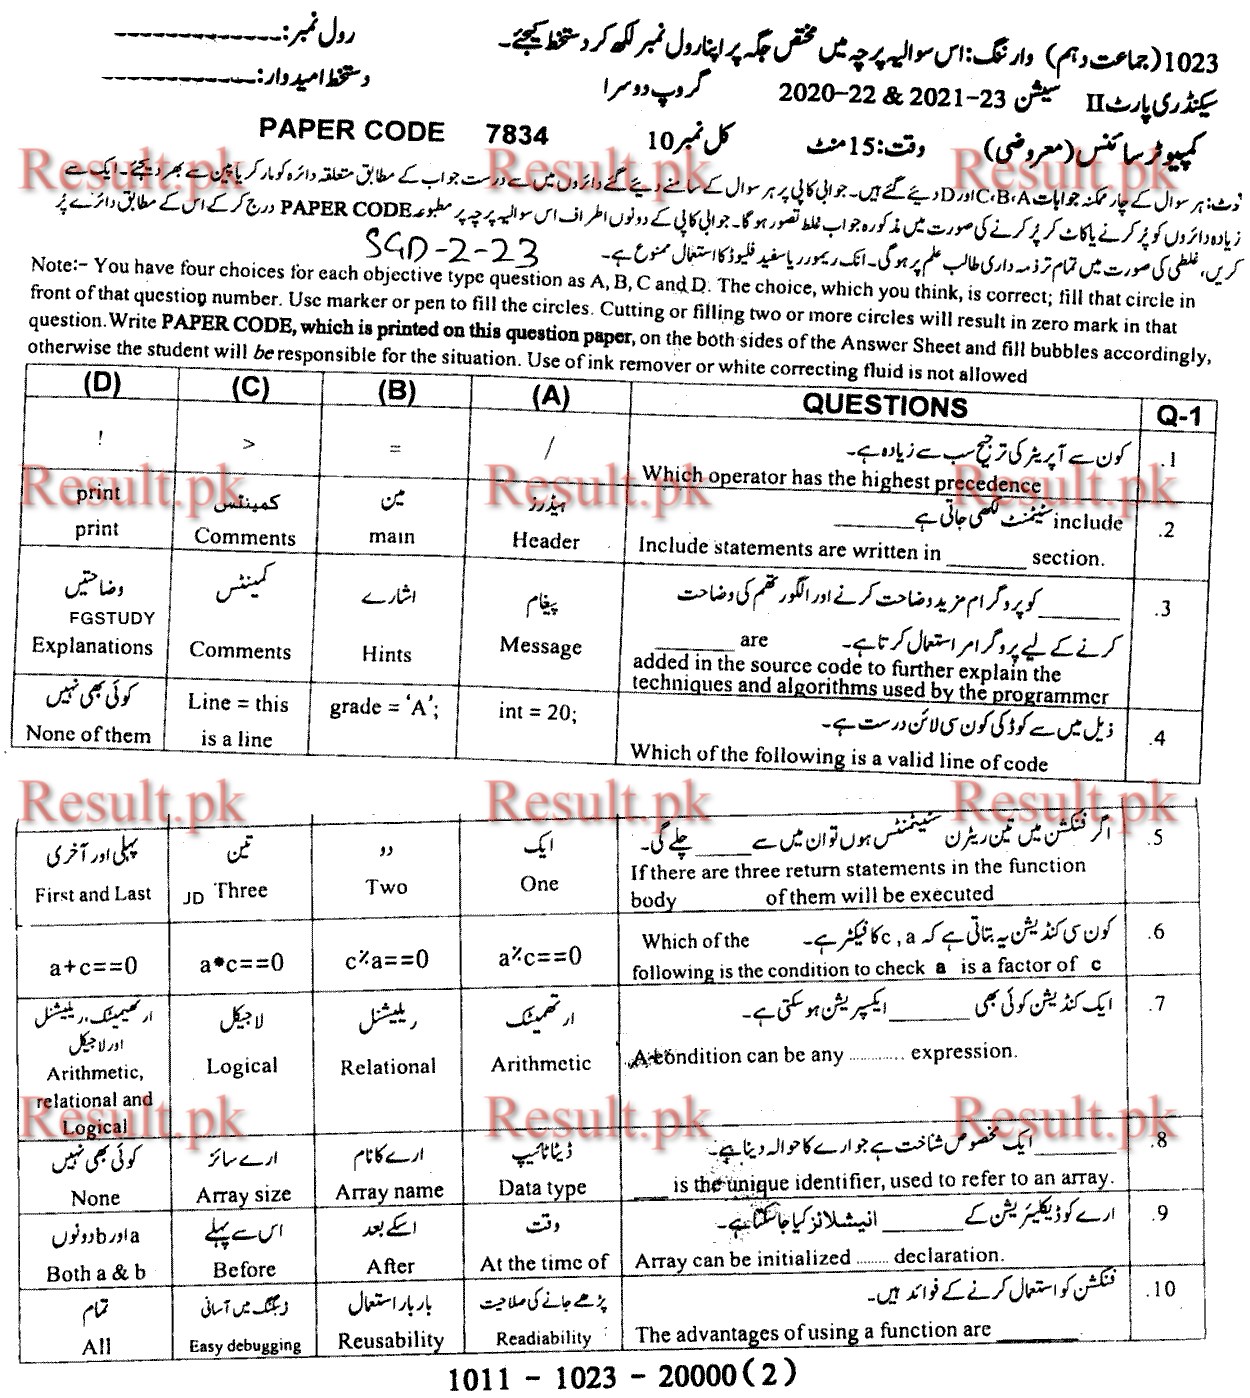 1023 (جماعت دہم) وارننگ: اس سوالیہ پرچہ میں مختص جگہ پر اپنا رول نمبر لکھ کر دستخط کیجئے۔
رول نمبر: -------------
سیکنڈری پارٹ II سیشن 2020-22 & 2021-23 گروپ دوسرا
دستخط امیدوار: -------------
کمپیوٹر سائنس (معروضی) وقت: 15 منٹ کل نمبر 10 PAPER CODE 7834
نوٹ: ہر سوال کے چار ممکنہ جوابات A، B، C اور D دیئے گئے ہیں۔ جوابی کاپی پر ہر سوال کے سامنے دیئے گئے دائروں میں سے درست جواب کے مطابق متعلقہ دائرہ کو مارکر یا پین سے بھر دیجئے۔ ایک سے
زیادہ دائروں کو پُر کرنے یا کاٹ کر پُر کرنے کی صورت میں مذکورہ جواب غلط تصور ہو گا۔ جوابی کاپی کے دونوں اطراف اس سوالیہ پرچہ پر مطبوعہ PAPER CODE درج کر کے اس کے مطابق دائرے پُر
کریں، غلطی کی صورت میں تمام تر ذمہ داری طالب علم پر ہو گی۔ انک ریموور یا سفید فلیوڈ کا استعمال ممنوع ہے۔ SGD-2-23
Note:- You have four choices for each objective type question as A, B, C and D. The choice, which you think, is correct; fill that circle in
front of that question number. Use marker or pen to fill the circles. Cutting or filling two or more circles will result in zero mark in that
question. Write PAPER CODE, which is printed on this question paper, on the both sides of the Answer Sheet and fill bubbles accordingly,
otherwise the student will be responsible for the situation. Use of ink remover or white correcting fluid is not allowed
(D) (C) (B) (A) QUESTIONS Q-1
کون سے آپریٹر کی ترجیح سب سے زیادہ ہے۔ .1
! > = /
Which operator has the highest precedence
include سٹیٹمنٹ لکھی جاتی ہے ______ .2
print کمینٹس مین ہیڈرز
print Comments main Header
Include statements are written in ______ section.
______ کو پروگرام مزید وضاحت کرنے اور الگورتھم کی وضاحت .3
کرنے کے لیے پروگرامر استعمال کرتا ہے۔ ______ are
وضاحتیں کمینٹس اشارے پیغام
FGSTUDY
Explanations Comments Hints Message
added in the source code to further explain the
techniques and algorithms used by the programmer
ذیل میں سے کوڈ کی کون سی لائن درست ہے۔ .4
کوئی بھی نہیں Line = this grade = 'A'; int = 20;
None of them is a line
Which of the following is a valid line of code
اگر فنکشن میں تین ریٹرن سٹیٹمنٹس ہوں تو ان میں سے ______ چلے گی۔ .5
پہلی اور آخری تین دو ایک
First and Last JD Three Two One
If there are three return statements in the function
body ______ of them will be executed
کون سی کنڈیشن یہ بتاتی ہے کہ c , a کا فیکٹر ہے۔ Which of the .6
a+c==0 a*c==0 c%a==0 a%c==0
following is the condition to check a is a factor of c
ایک کنڈیشن کوئی بھی ______ ایکسپریشن ہو سکتی ہے۔ .7
ارتھیمیٹک، ریلیشنل لاجیکل ریلیشنل ارتھمیٹک
اور لاجیکل
Arithmetic, Logical Relational Arithmetic
relational and
Logical
A condition can be any ............ expression.
______ ایک مخصوص شناخت ہے جو ارے کا حوالہ دیتا ہے۔ .8
کوئی بھی نہیں ارے سائز ارے کا نام ڈیٹا ٹائیپ
None Array size Array name Data type
____ is the unique identifier, used to refer to an array.
ارے کو ڈیکلیریشن کے ______ انیشلائز کیا جا سکتا ہے۔ .9
a اور b دونوں اس سے پہلے اسکے بعد وقت
Both a & b Before After At the time of
Array can be initialized ......... declaration.
فنکشن کو استعمال کرنے کے فوائد ہیں۔ .10
تمام ڈیبگنگ میں آسانی بار بار استعمال پڑھے جانے کی صلاحیت
All Easy debugging Reusability Readiability
The advantages of using a function are ______
1011 - 1023 - 20000 (2)
Result.pk Result.pk Result.pk
Result.pk Result.pk Result.pk
Result.pk Result.pk Result.pk
Result.pk Result.pk Result.pk